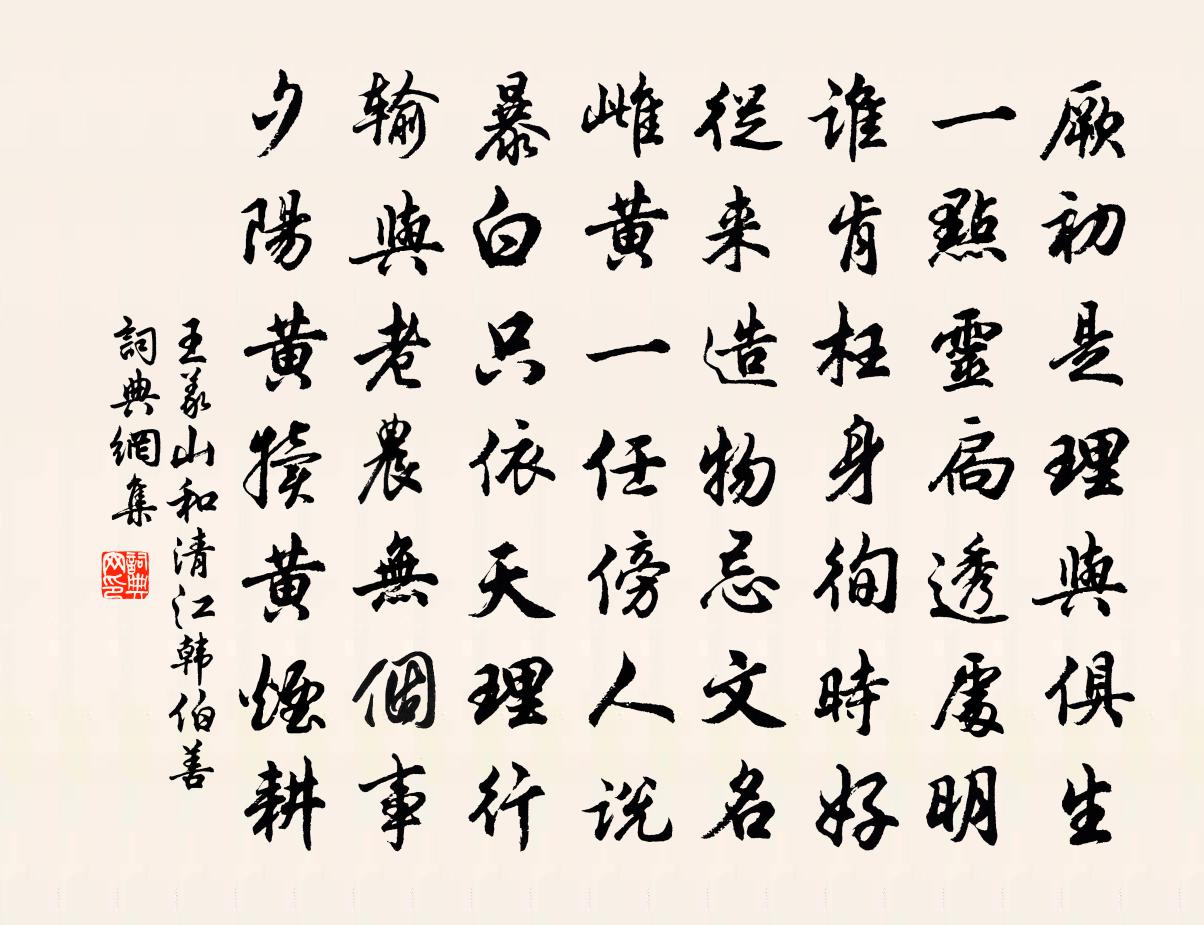 厥初是理與俱生
一點靈扃透處明
誰肯枉身徇時好
從来造物忌文名
雌黄一任傍人説
暴白只依天理行
輸與老農無個事
夕陽黄犢黄煙耕
王義山和清江韩伯善
詞典網集
詞典网印